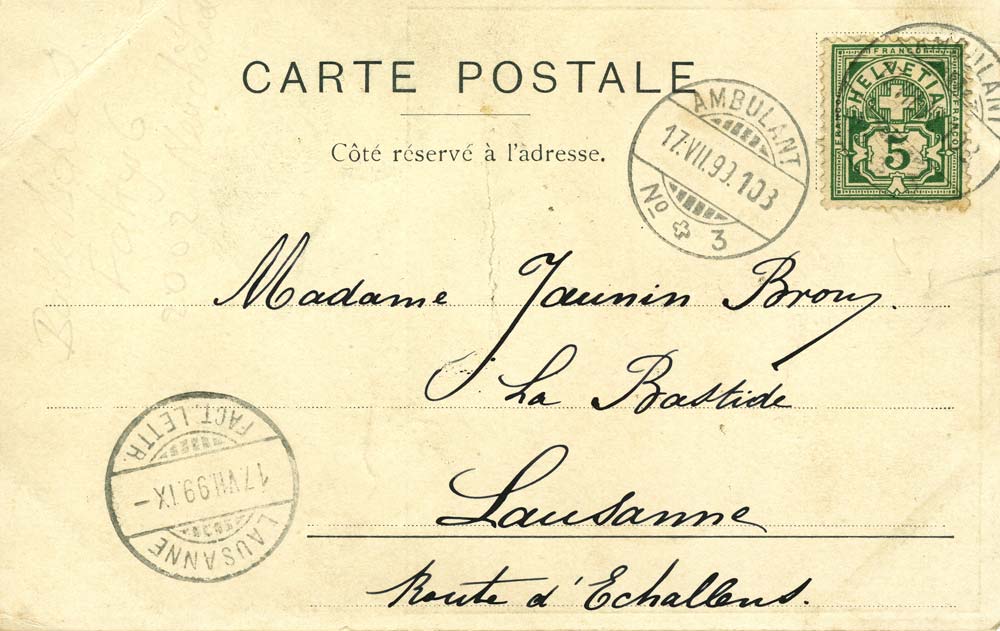 CARTE POSTALE
Côté réservé à l'adresse.
FRANCO
HELVETIA
5
AMBULANT
17.VII.99.103
No 3
Madame Jaunin Brou
La Bastide
Lausanne
Route d'Echallens.
FACT. LETTR.
17.VII.99.IX-
LAUSANNE